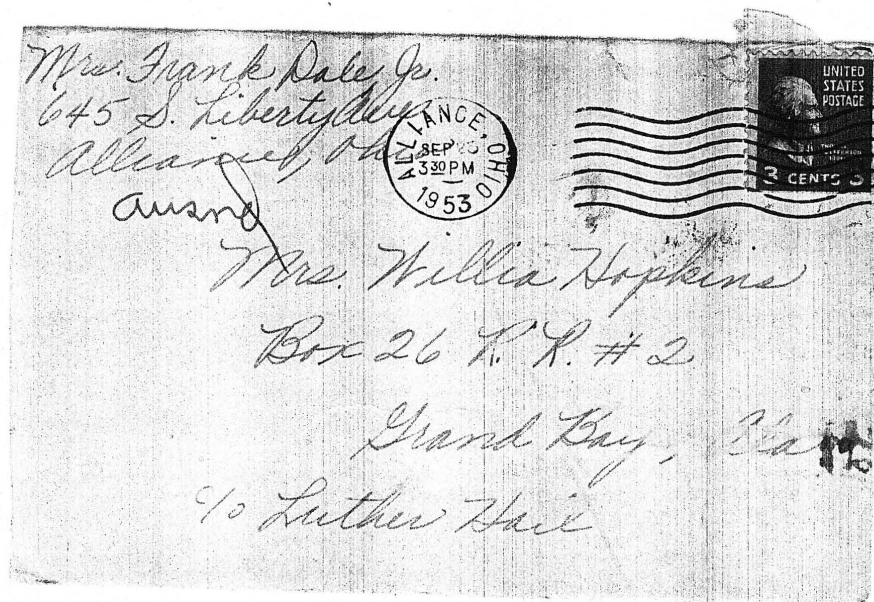 Mrs. Frank Dale, Jr.
645 S. Liberty Ave
Alliance, Ohio
ALLIANCE, OHIO
SEP
3 30 PM
1953
UNITED
STATES
POSTAGE
3 CENTS 3
Mrs. Willia Hopkins
Box 26 R. R. # 2
Grand Bay, Ala
c/o Luther Hail